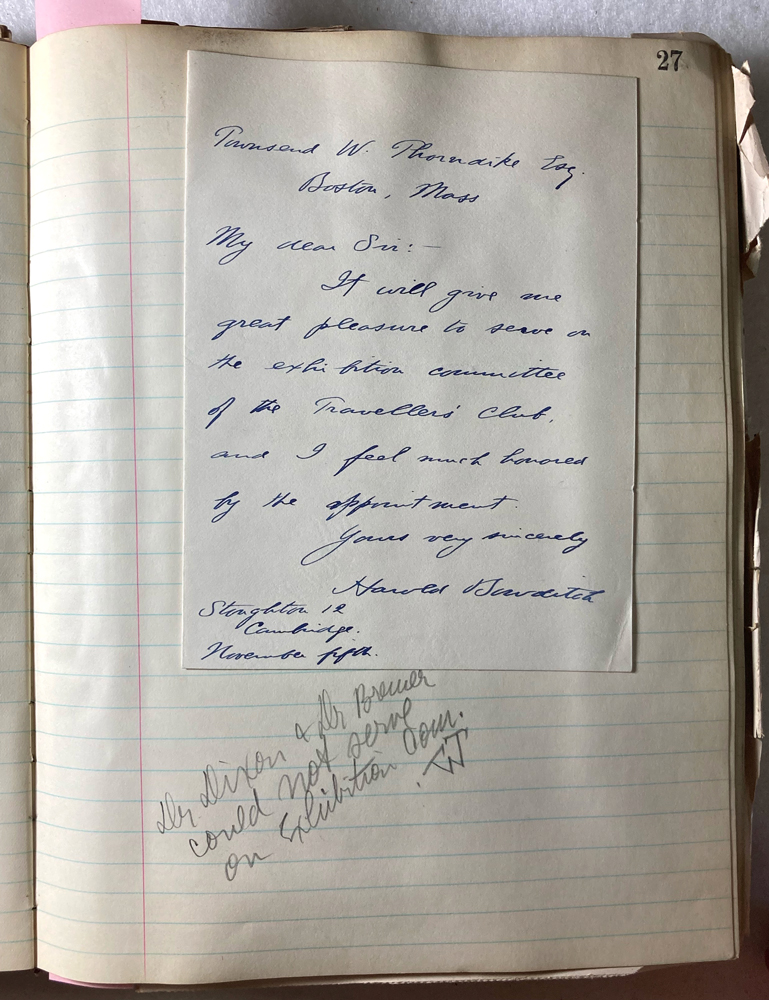 27
Townsend W. Thorndike Esq.
Boston, Mass
My dear Sir:—
It will give me
great pleasure to serve on
the exhibition committee
of the Travellers' Club,
and I feel much honored
by the appointment.
Yours very sincerely
Harold Bowditch
Stoughton 12
Cambridge.
November fifth.
Dr Dixon & Dr Bremer
could not serve
on Exhibition Com.